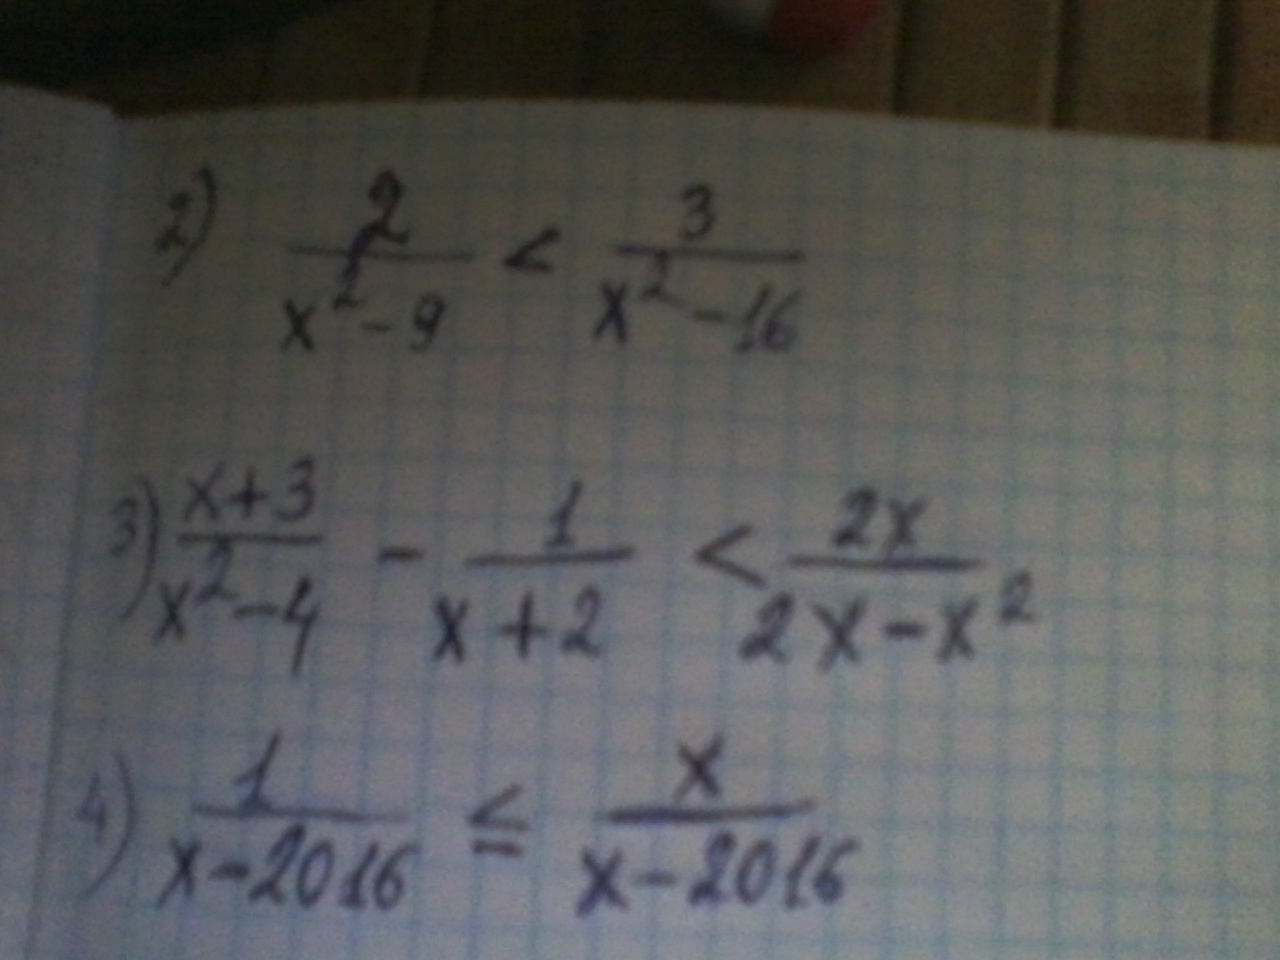 2) 2/(x²-9) < 3/(x²-16)
3) (x+3)/(x²-4) - 1/(x+2) < 2x/(2x-x²)
4) 1/(x-2016) ≤ x/(x-2016)